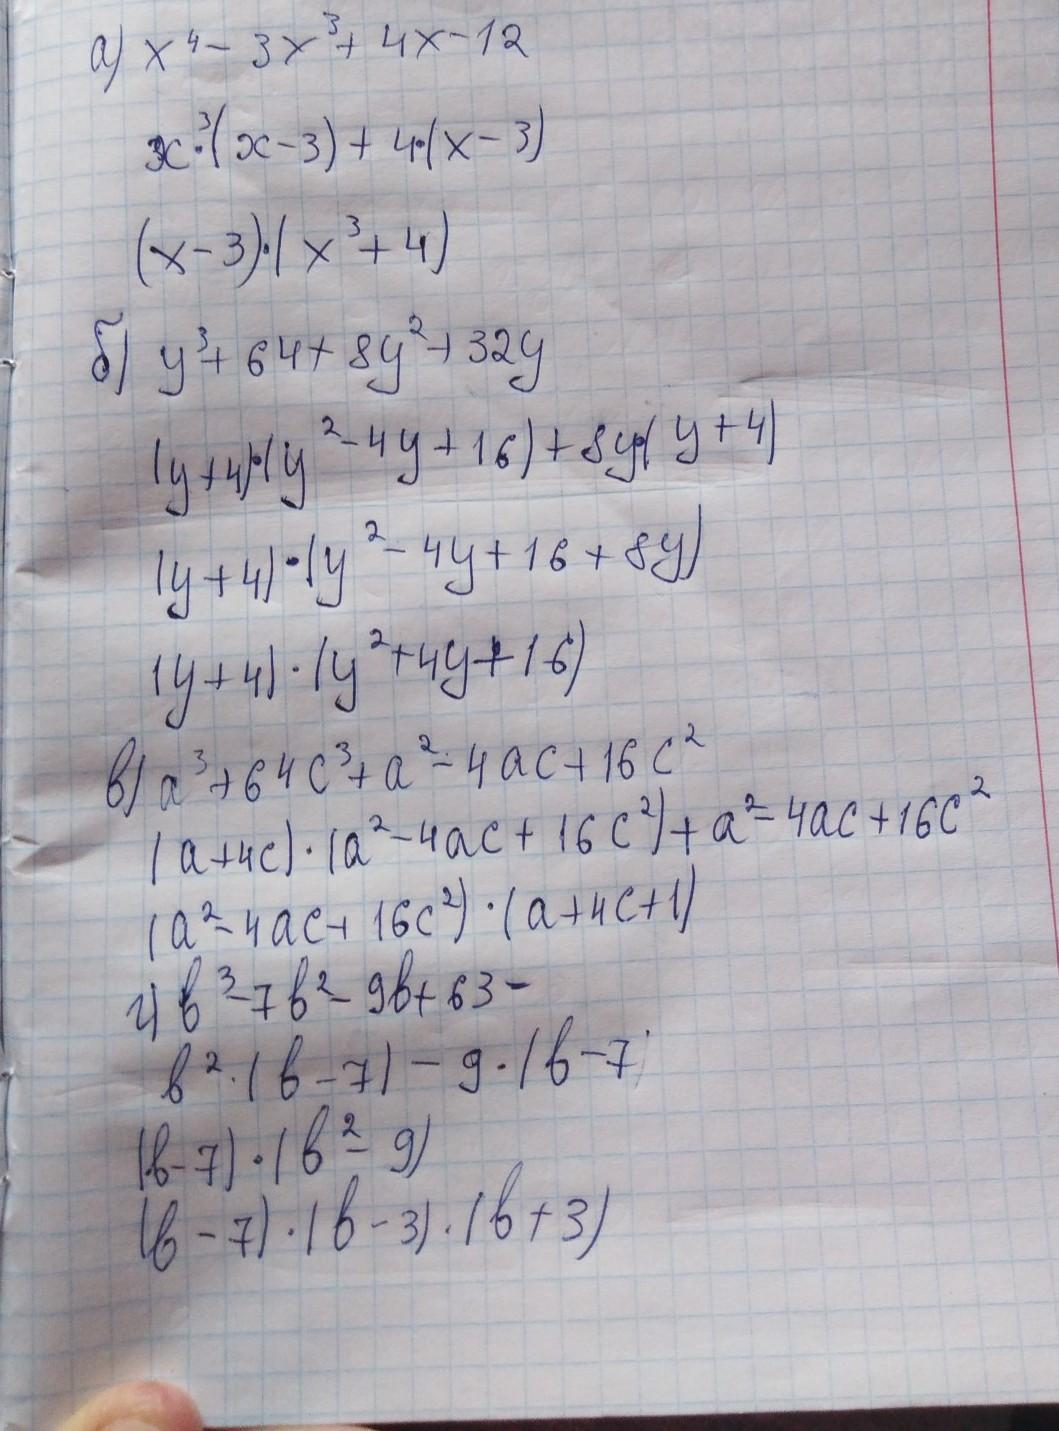 а) x⁴ - 3x³ + 4x - 12
x³·(x - 3) + 4·(x - 3)
(x - 3)·(x³ + 4)
б) y³ + 64 + 8y² + 32y
(y + 4)·(y² - 4y + 16) + 8y·(y + 4)
(y + 4)·(y² - 4y + 16 + 8y)
(y + 4)·(y² + 4y + 16)
в) a³ + 64c³ + a² - 4ac + 16c²
(a + 4c)·(a² - 4ac + 16c²) + a² - 4ac + 16c²
(a² - 4ac + 16c²)·(a + 4c + 1)
г) b³ - 7b² - 9b + 63 -
b²·(b - 7) - 9·(b - 7)
(b - 7)·(b² - 9)
(b - 7)·(b - 3)·(b + 3)